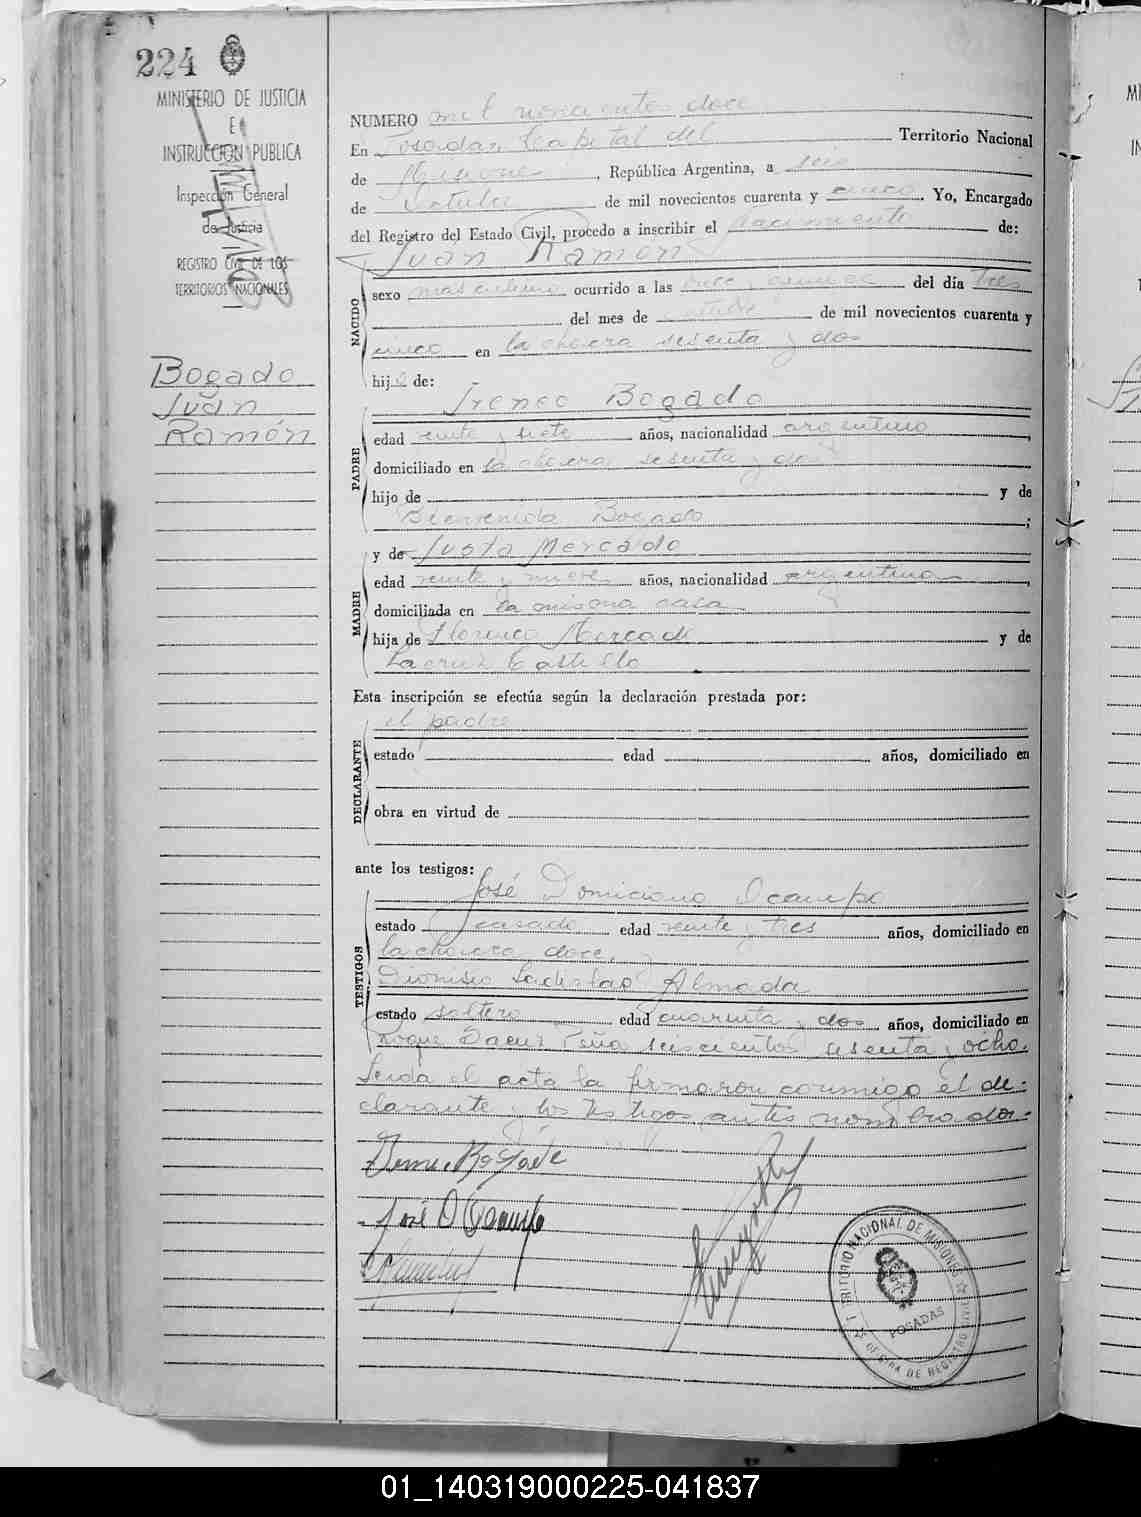 224
MINISTERIO DE JUSTICIA
E
INSTRUCCION PUBLICA
Inspección General
de Justicia
REGISTRO CIVIL DE LOS
TERRITORIOS NACIONALES
Bogado
Juan
Ramón
NUMERO mil novecientos doce
En Posadas, Capital del Territorio Nacional
de Misiones, República Argentina, a seis
de Octubre de mil novecientos cuarenta y cinco. Yo, Encargado
del Registro del Estado Civil, procedo a inscribir el nacimiento de:
Juan Ramón
NACIDO
sexo masculino ocurrido a las once del día tres
del mes de octubre de mil novecientos cuarenta y
cinco en la chacra sesenta y dos
hijo de:
Ireneo Bogado
PADRE
edad veinte y siete años, nacionalidad argentino,
domiciliado en la chacra sesenta y dos
hijo de y de
Bienvenida Bogado;
y de Justa Mercado
MADRE
edad veinte y nueve años, nacionalidad argentina,
domiciliada en la misma casa
hija de Mercado y de
Lacruz Castillo
Esta inscripción se efectúa según la declaración prestada por:
el padre
DECLARANTE
estado edad años, domiciliado en
obra en virtud de
ante los testigos:
José Domiciano Ocampo
TESTIGOS
estado casado edad veinte y tres años, domiciliado en
la chacra doce, y
Dionisio Ladislao Almada
estado soltero edad cuarenta y dos años, domiciliado en
Roque Saenz Peña seiscientos sesenta y ocho.
Leida el acta la firmaron conmigo el de-
clarante y los testigos antes nombrados.
José D Ocampo
TERRITORIO NACIONAL DE MISIONES
POSADAS
OFICINA DE REGISTRO CIVIL
01_140319000225-041837